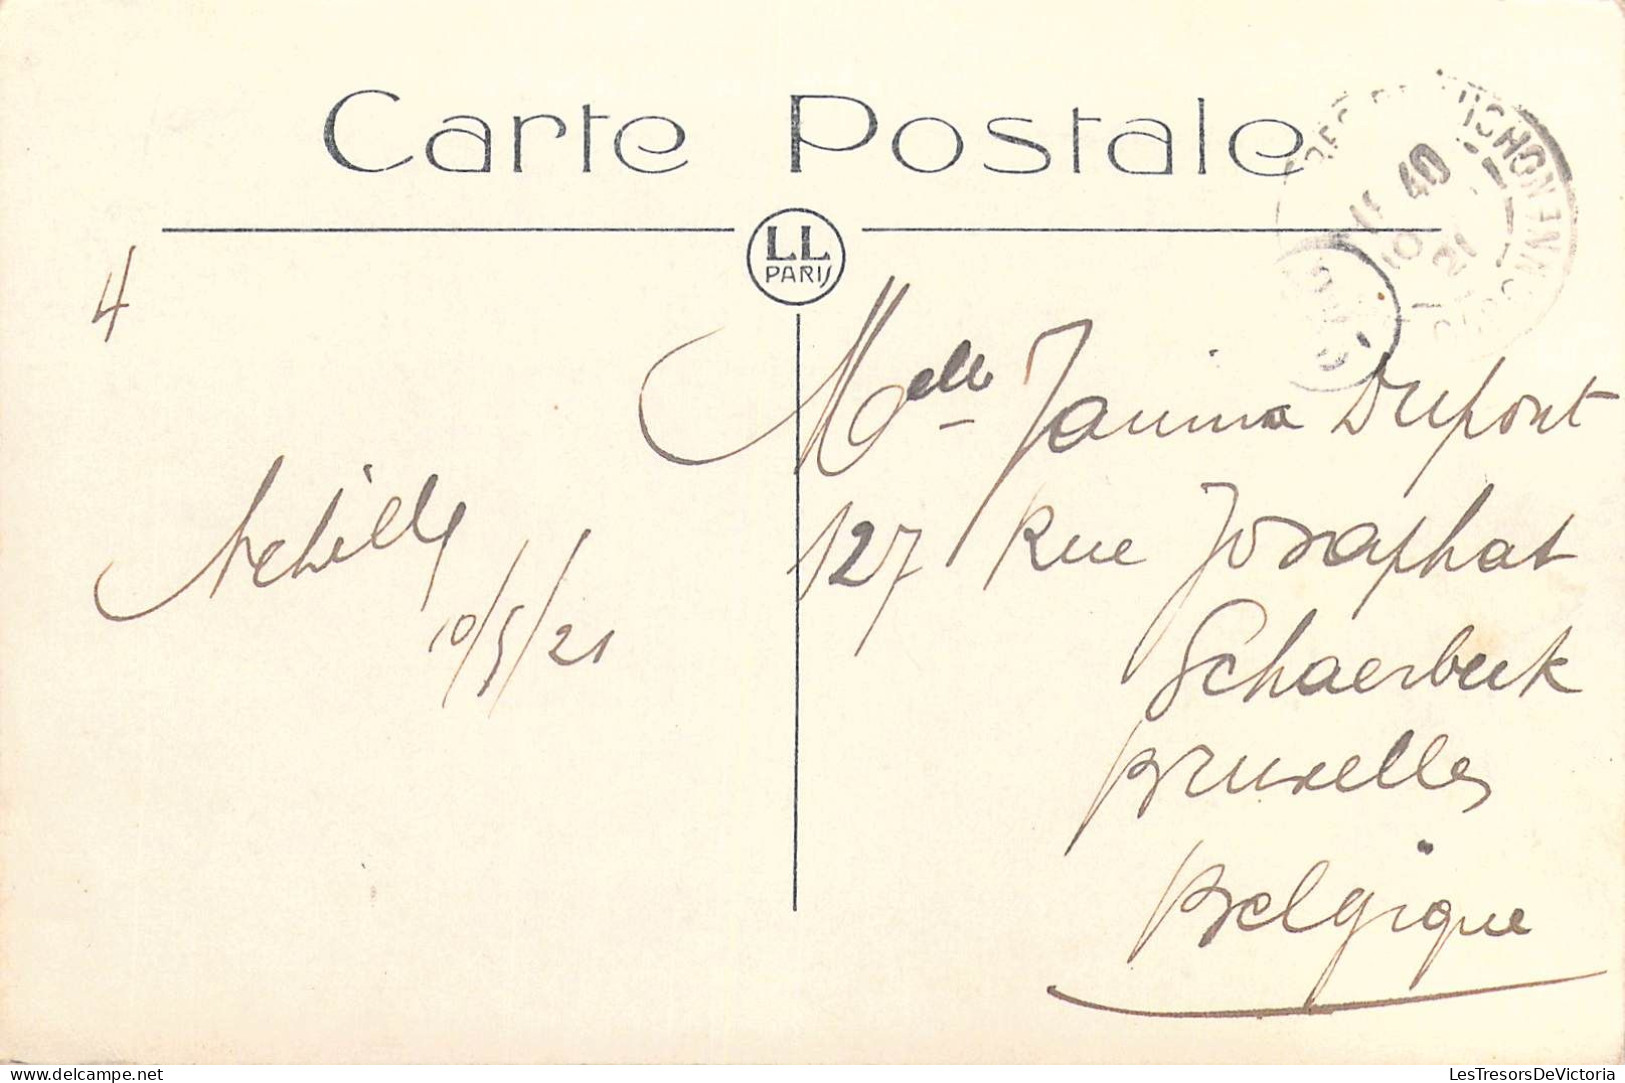 Carte Postale
LL
PARIS
4
Melle Janina Dupont
127 Rue Josaphat
Schaerbeek
Bruxelles
Belgique
Achille
10/5/21
40
10
21
delcampe.net
LesTresorsDeVictoria